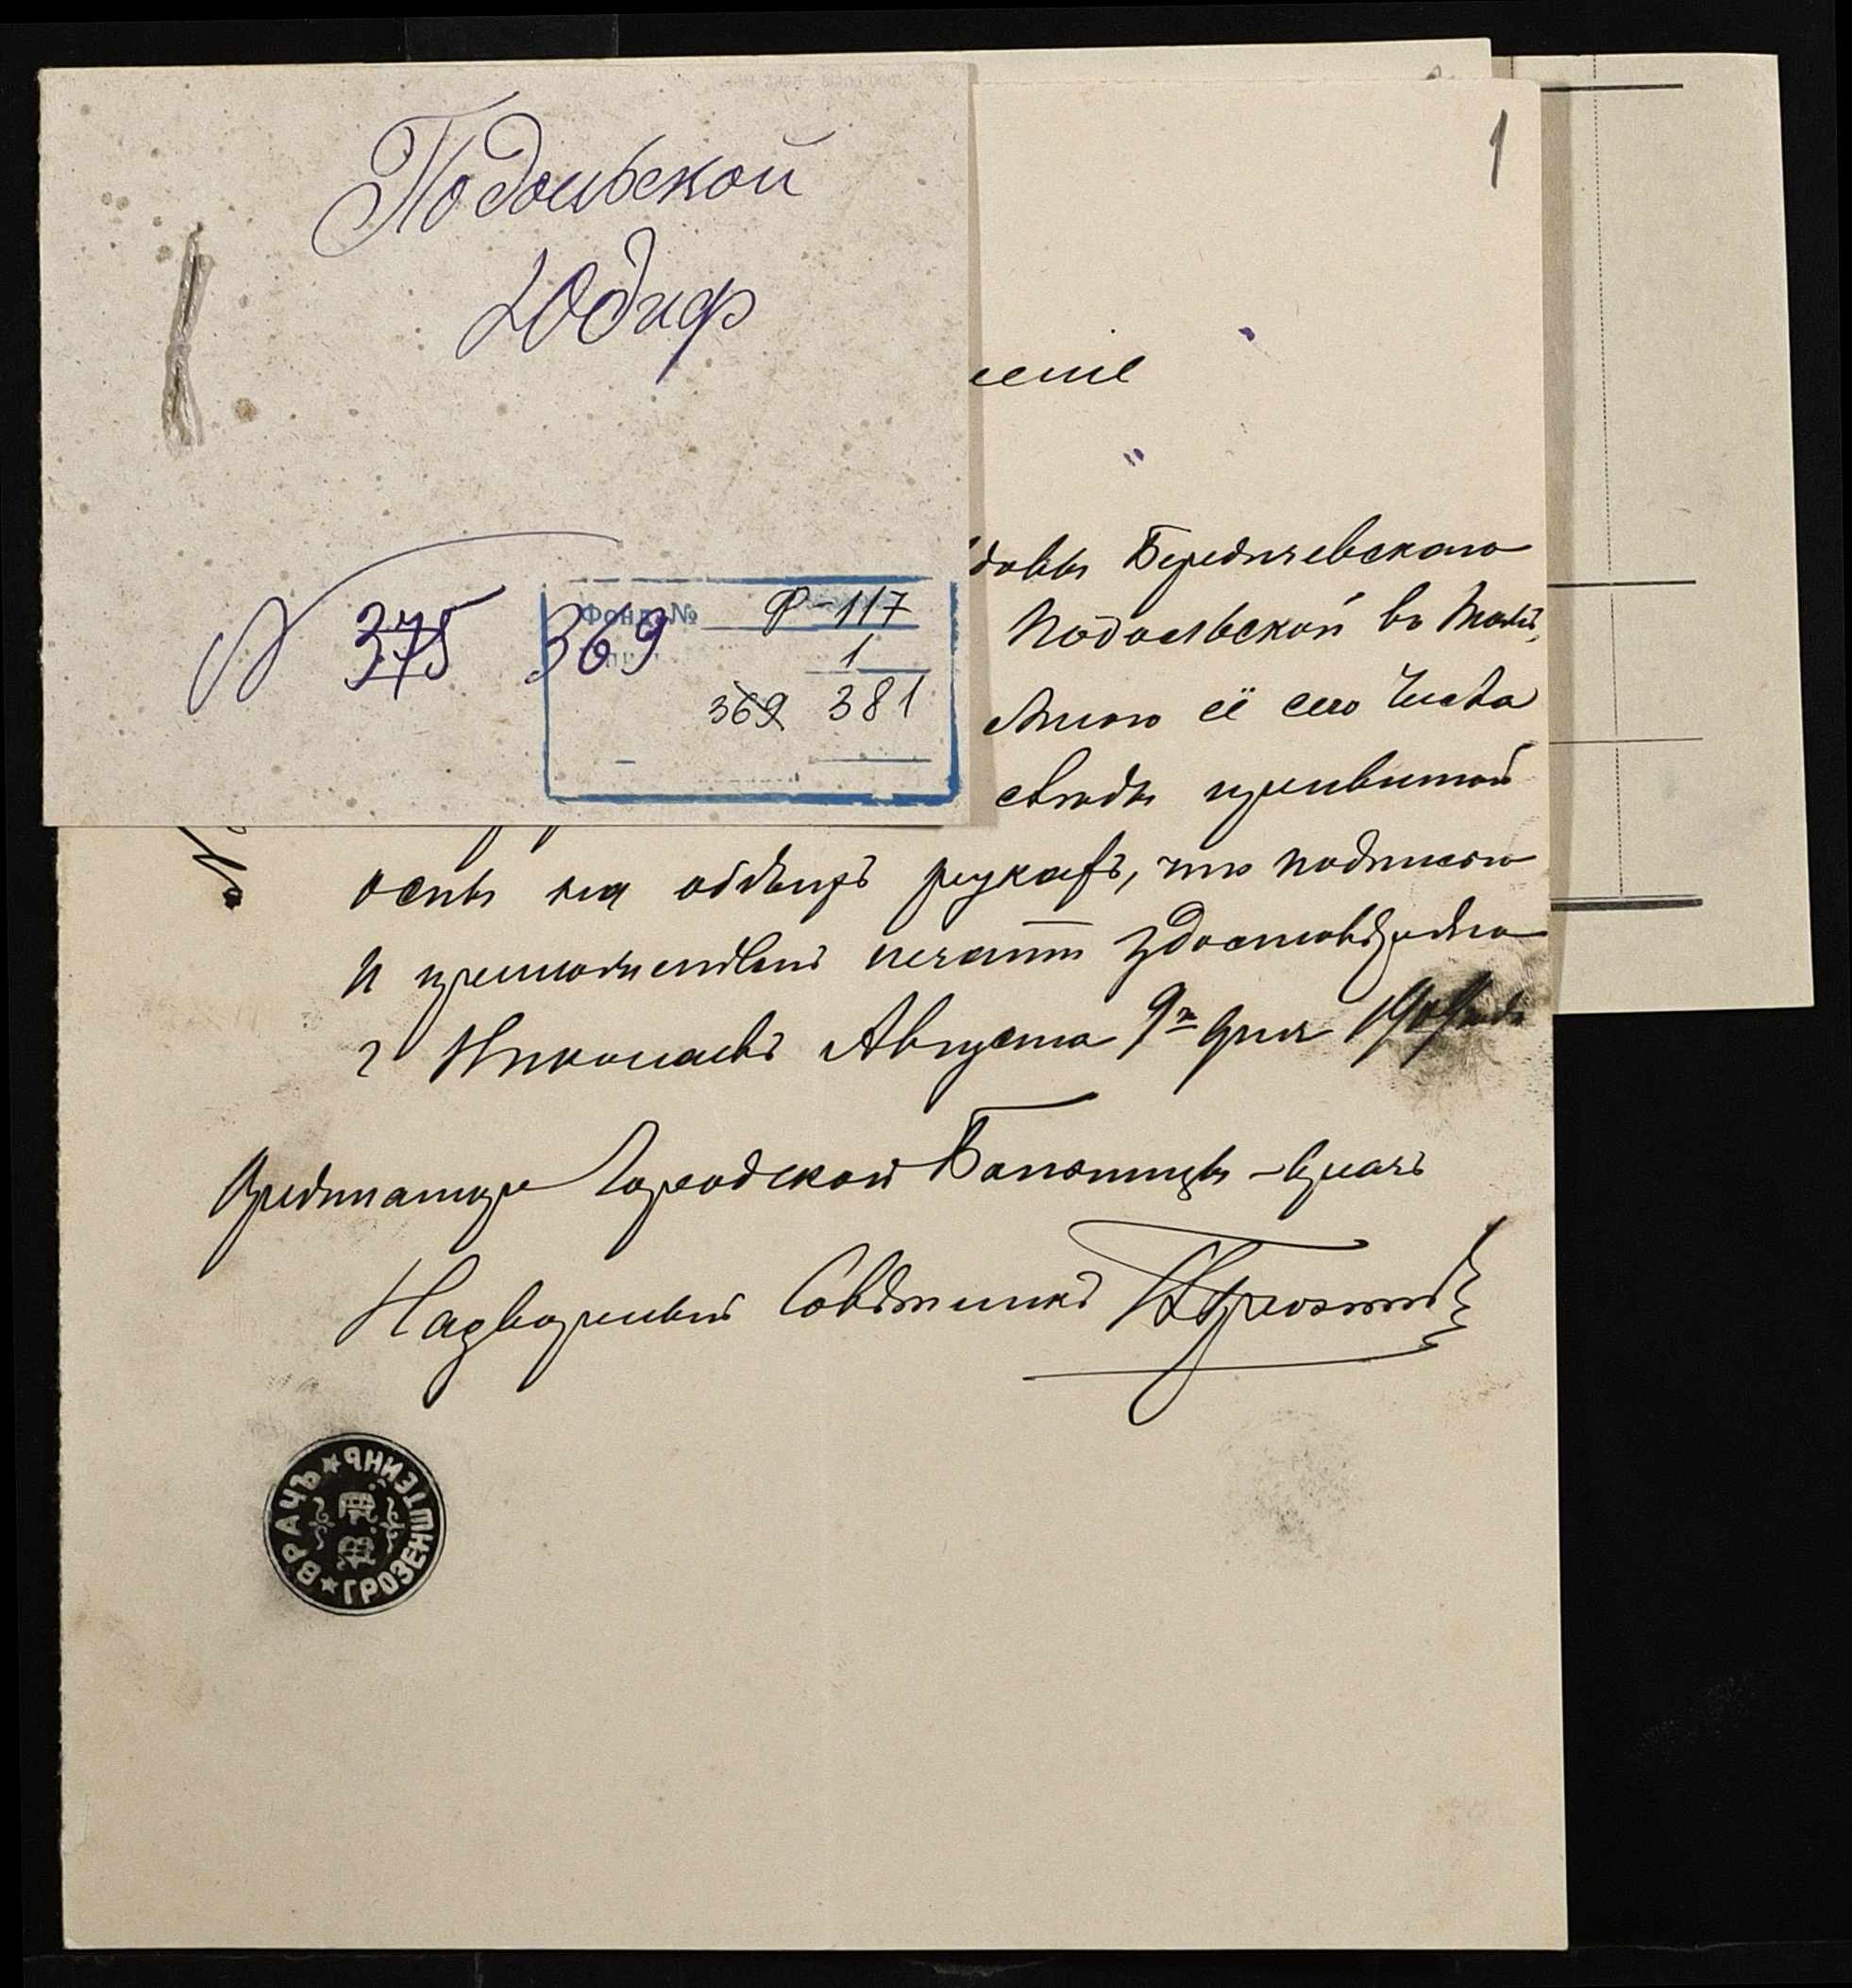 Подольской
Юдиф
N 375 369
Фонд №
Ф-117
1
369 381
1
ение
довы Бердичевского
Подольской въ томъ,
мною ея сего числа
следы привитой
оспы на обѣихъ рукахъ, что подписью
и приложеніемъ печати удостовѣряю
г Николаевъ Августа 9го дня 1909 года
Ординаторъ Городской Больницы - врачъ
Надворный Совѣтникъ
ВРАЧЪ ГРОЗЕНШТЕЙНЪ